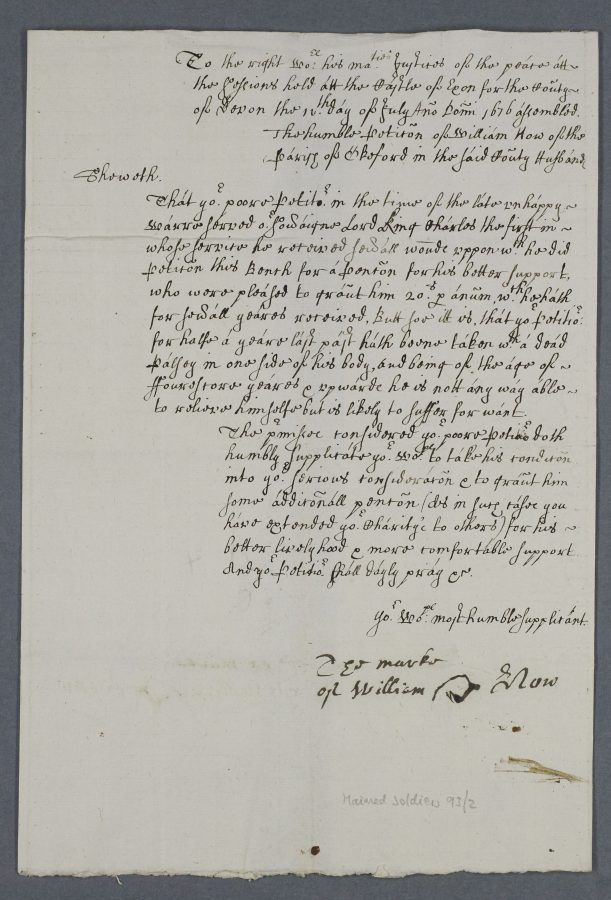 To the right Wo:ll his ma:ties Justices of the peace att
the Sessions held att the Castle of Exon for the County
of Devon the 11th day of July Año Dom̃i 1676 assembled.
The humble Petic̃on of William How of the
Parish of Okeford in the said County Husband
Sheweth.
That yo:r poore Petitõ:r in the time of the late unhappy
Warre served o:r Sov̄aigne Lord King Charles the first in
whose service he received sev̄all wounds uppon w:ch he did
Petic̃on this Bench for a Penc̃on for his better support,
who were pleased to grãut him 20:s p añum w:ch he hath
for sev̄all yeares received, Butt soe itt is, that yo:r Petitiõ:r
for halfe a yeare last past hath beene taken w:th a dead
Palsey in one side of his body, and being of the age of
ffourescore yeares & upwards he is nott any way able
to relieve himselfe but is likely to suffer for want.
The p̃misses considered yo:r poore Petitiõ:r doth
humbly supplicate yo:r Wo:pps to take his condic̃on
into yo:r serious considerac̃on & to grãut him
some addic̃onall penc̃on (As in such cases you
have extended yo:r Charityes to others) for his
better livelyhood & more comfortable support
And yo:r Petitiõ:r shall dayly pray &c.
yo:r Wo:pps most humble supplicant.
The marke
of William How
Maimed Soldiers 93/2